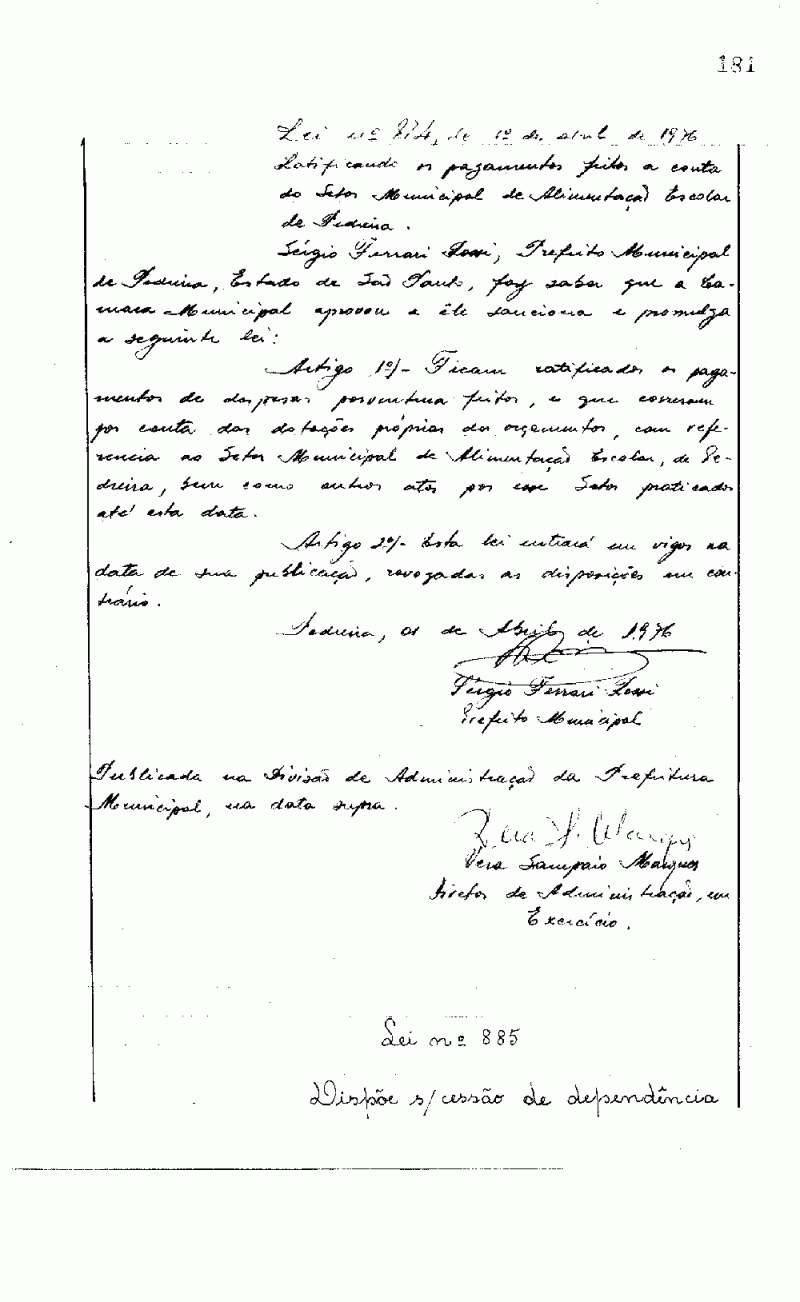 181
Lei nº 884, de 1º de abril de 1976
Ratificando os pagamentos feitos a conta
do Setor Municipal de Alimentação Escolar
de Pedreira.
Sérgio Ferrari Rossi, Prefeito Municipal
de Pedreira, Estado de São Paulo, faz saber que a Ca-
mara Municipal aprovou e êle sanciona e promulga
a seguinte lei:
Artigo 1º/- Ficam ratificados os paga-
mentos de despesas porventura feitos, e que correram
por conta das dotações próprias dos orçamentos, com refe-
rencia ao Setor Municipal de Alimentação Escolar, de Pe-
dreira, bem como outros atos por esse Setor praticados
até esta data.
Artigo 2º/- Esta lei entrará em vigor na
data de sua publicação, revogadas as disposições em con-
trário.
Pedreira, 01 de Abril de 1.976
Sérgio Ferrari Rossi
Prefeito Municipal
Publicada na Divisão de Administração da Prefeitura
Municipal, na data supra.
Vera Sampaio Marques
Diretor de Administração, em
Exercício.
Lei nº 885
Dispõe s/cessão de dependência